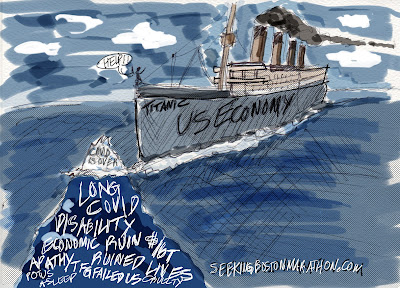 HELP!
TITANIC
US ECONOMY
COVID
IS OVER
LONG
COVID
DISABILITY
ECONOMIC RUIN
APATHY
RUINED
LIVES
POTUS
ASLEEP
FAILED US
CRUELTY
SEEKINGBOSTONMARATHON.COM